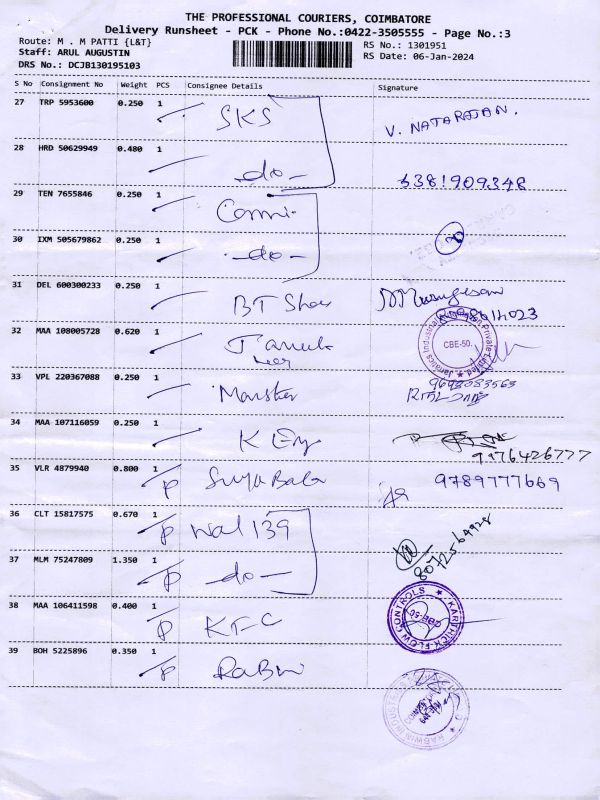 THE PROFESSIONAL COURIERS, COIMBATORE
Delivery Runsheet - PCK - Phone No.:0422-3505555 - Page No.:3
Route: M . M PATTI {L&T}
RS No.: 1301951
Staff: ARUL AUGUSTIN
RS Date: 06-Jan-2024
DRS No.: DCJB130195103
S No Consignment No Weight PCS Consignee Details Signature
27 TRP 5953600 0.250 1 SKS V. NATARAJAN.
28 HRD 50629949 0.480 1 -do- 6381909348
29 TEN 7655846 0.250 1
30 IXM 505679862 0.250 1 -do-
31 DEL 600300233 0.250 1 BT
32 MAA 108005728 0.620 1
CBE-50.
33 VPL 220367088 0.250 1 9698083563
34 MAA 107116059 0.250 1 K
9976426777
35 VLR 4879940 0.800 1 P 9789777669
36 CLT 15817575 0.670 1 P Wal 139
8072564928
37 MLM 75247809 1.350 1 P -do-
38 MAA 106411598 0.400 1 P KFC KARTHICK FLOW CONTROLS CBE-50
39 BOH 5225896 0.350 1 P